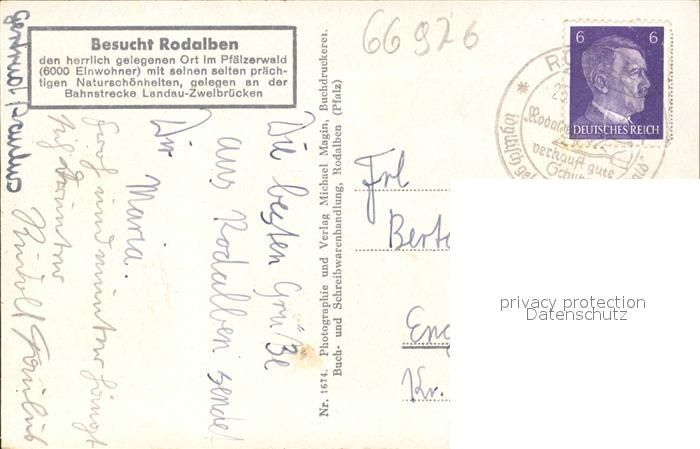 Besucht Rodalben
den herrlich gelegenen Ort im Pfälzerwald
(6000 Einwohner) mit seinen selten präch-
tigen Naturschönheiten, gelegen an der
Bahnstrecke Landau-Zweibrücken
66926
6 6
DEUTSCHES REICH
verkauft gute
Die besten Grüße
aus Rodalben sendet
Dir Maria.
Froh und munter
Rudolf
Nr. 1674. Photographie und Verlag Michael Magin, Buchdruckerei.
Buch- und Schreibwarenhandlung, Rodalben (Pfalz)
Frl
Berta
Kr.
privacy protection
Datenschutz